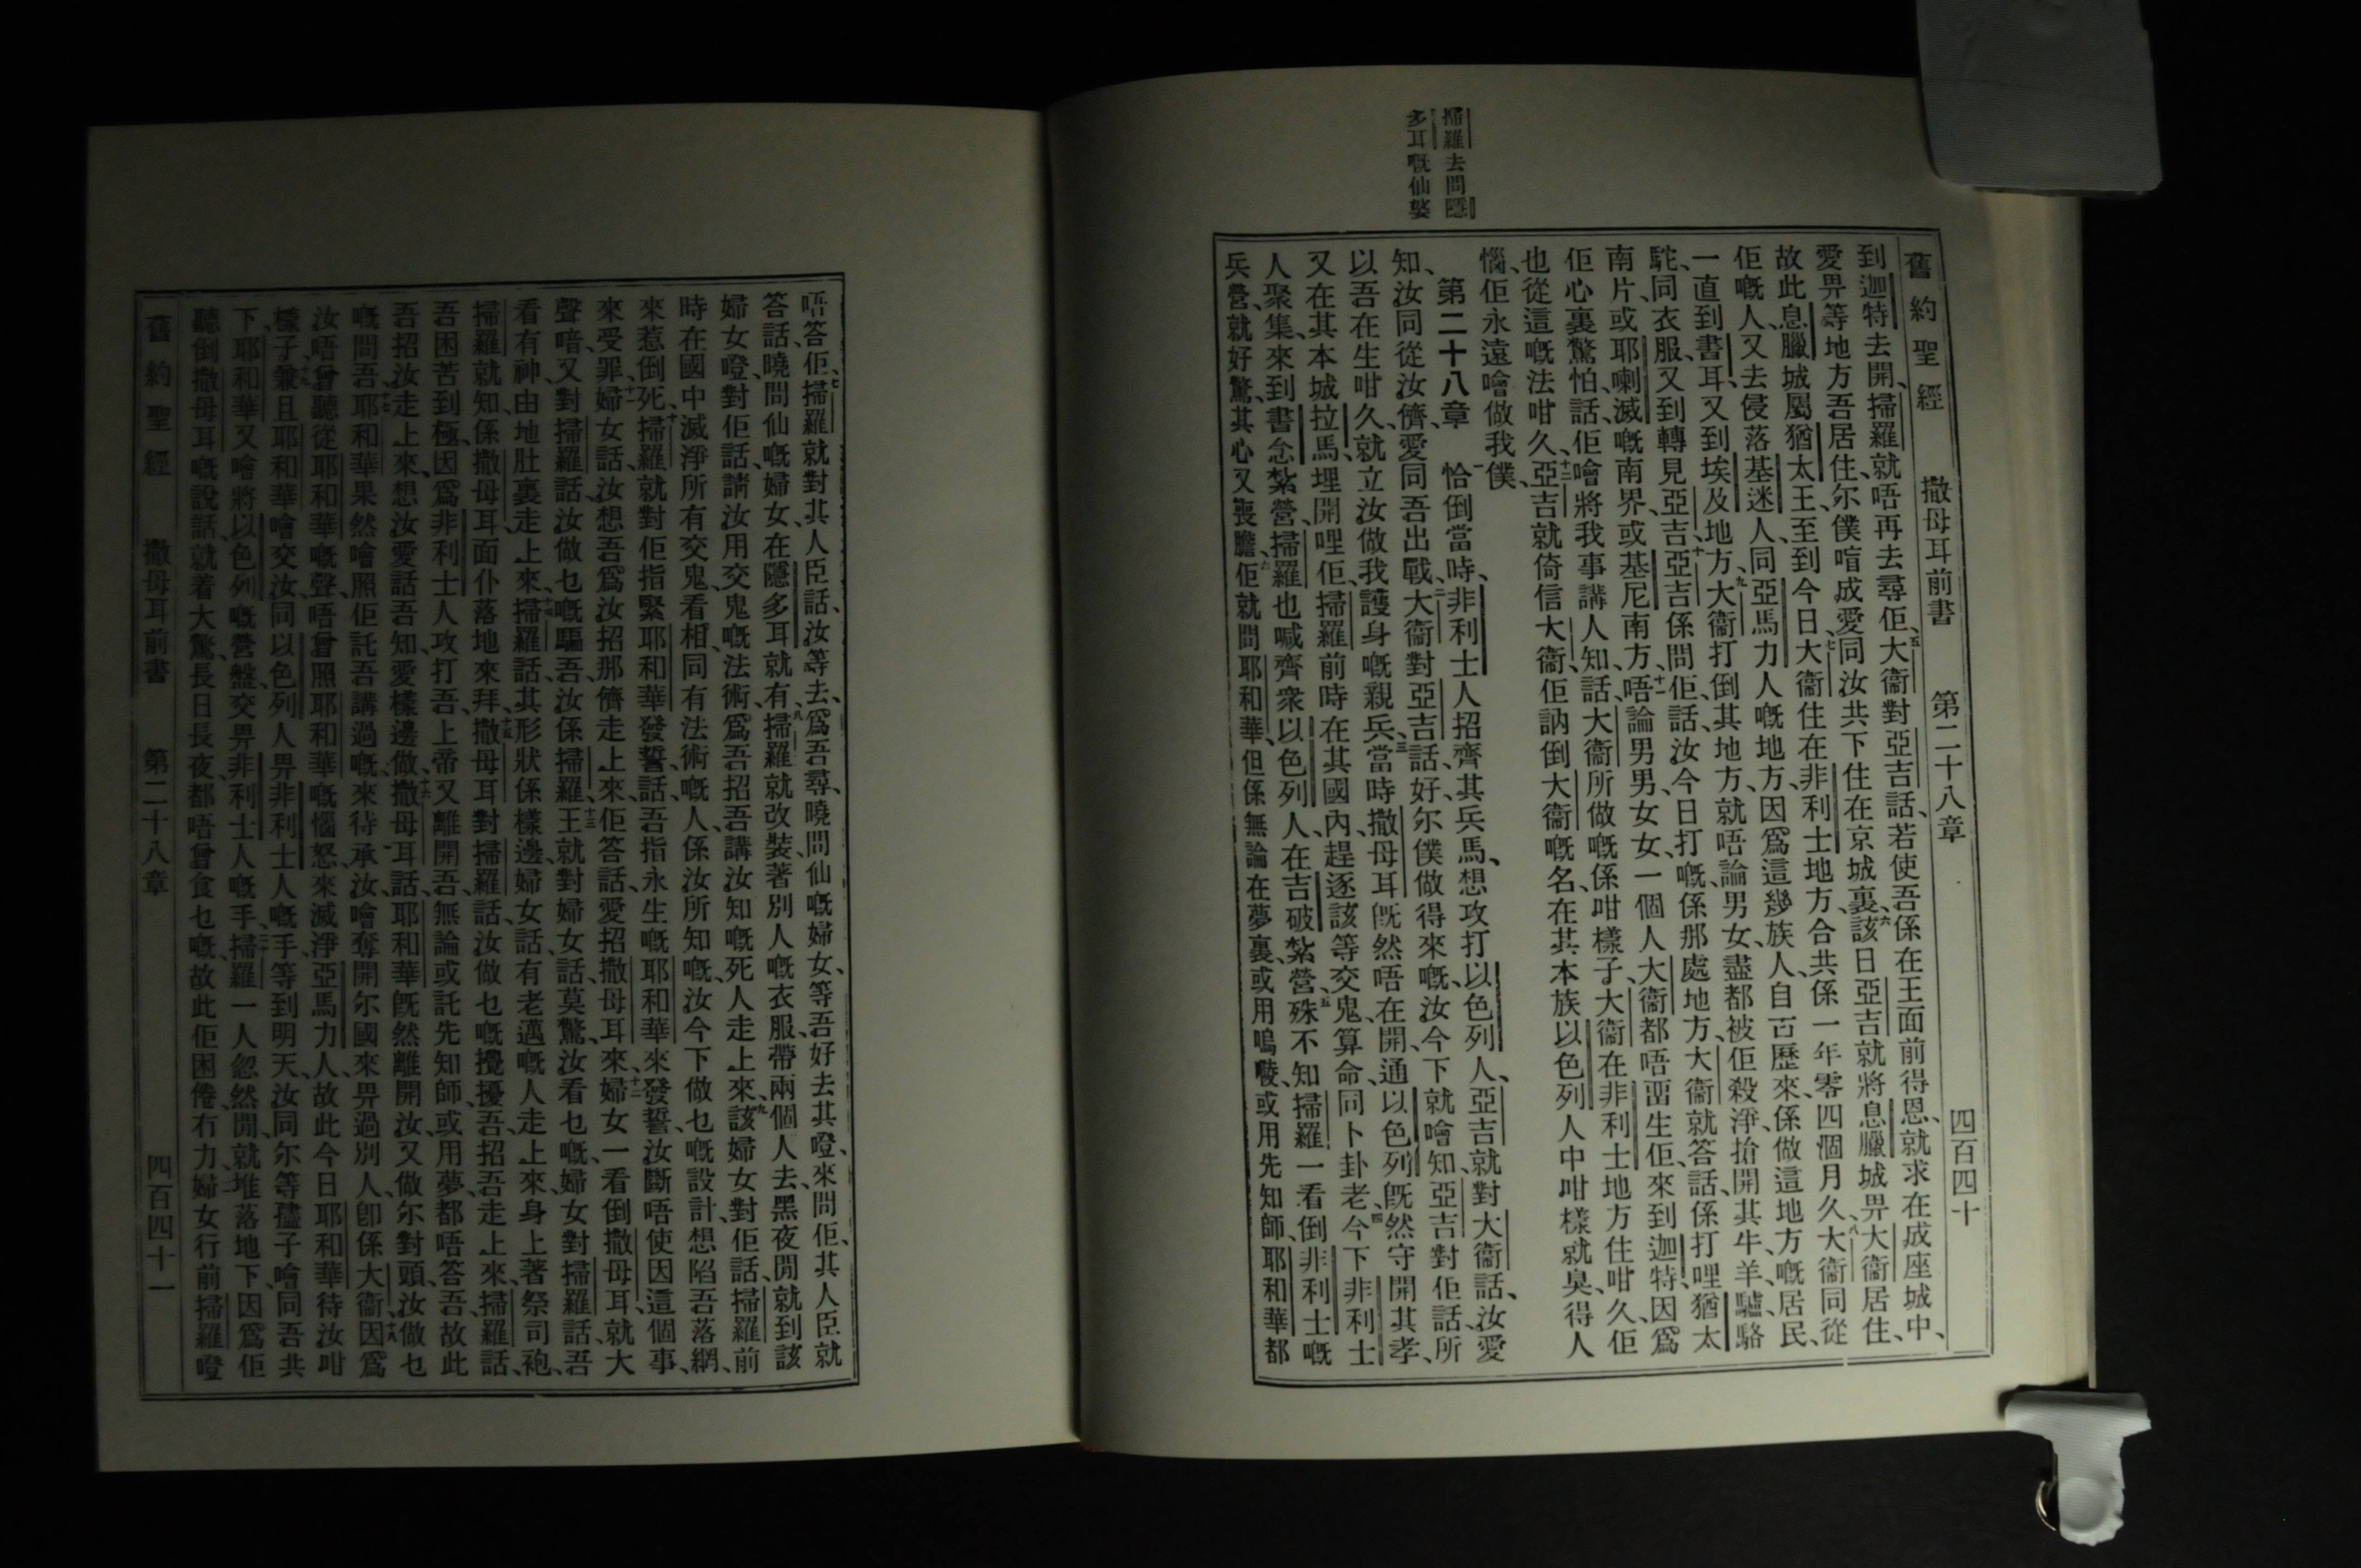 舊約聖經　撒母耳前書　第二十八章　四百四十
到迦特去開、掃羅就唔再去尋佢、五大衞對亞吉話、若使吾係在王面前得恩、就求在成座城中、
愛畀等地方吾居住、尔僕喧成愛同汝共下住在京城裏、六該日亞吉就將息臘城畀大衞居住、
故此息臘城屬猶太王、至到今日、七大衞住在非利士地方、合共係一年零四個月久、八大衞同從
佢嘅人、又去侵落基迷人、同亞馬力人嘅地方、因爲這幾族人、自古歷來、係做這地方嘅居民、
一直到書耳、又到埃及地方、九大衞打倒其地方、就唔論男女、盡都被佢殺淨、搶開其牛、羊、驢、駱
駝、同衣服、又到轉見亞吉、十亞吉係問佢話、汝今日打嘅、係那處地方、大衞就答話、係打哩猶太
南片、或耶喇滅嘅南界、或基尼南方、十一唔論男男女女、一個人大衞都唔畱生佢、來到迦特、因爲
佢心裏驚怕、話佢噲將我事講人知、話大衞所做嘅係咁樣子、大衞在非利士地方住咁久、佢
也從這嘅法咁久、十二亞吉就倚信大衞、佢訥倒大衞嘅名、在其本族以色列人中咁樣就臭、得人
惱、佢永遠噲做我僕、
第二十八章　一恰倒當時、非利士人招齊其兵馬、想攻打以色列人、亞吉就對大衞話、汝愛
知、汝同從汝儕愛同吾出戰、二大衞對亞吉話、好、尔僕做得來嘅、汝今下就噲知、亞吉對佢話、所
以吾在生咁久、就立汝做我護身嘅親兵、三當時撒母耳旣然唔在開、通以色列旣然守開其孝、
又在其本城拉馬、埋開哩佢、掃羅前時在其國內、趕逐該等交鬼、算命、同卜卦老、四今下非利士
人聚集、來到書念紮營、掃羅也喊齊衆以色列人、在吉破紮營、五殊不知掃羅一看倒非利士嘅
兵營、就好驚、其心又喪膽、六佢就問耶和華、但係無論在夢裏、或用嗚㖫、或用先知師、耶和華都
掃羅去問隱
多耳嘅仙婆
唔答佢、七掃羅就對其人臣話、汝等去、爲吾尋、曉問仙嘅婦女、等吾好去其嶝、來問佢、其人臣就
答話、曉問仙嘅婦女、在隱多耳就有、八掃羅就改裝、著別人嘅衣服、帶兩個人去、黑夜間就到該
婦女嶝、對佢話、請汝用交鬼嘅法術、爲吾招吾講汝知嘅死人走上來、九該婦女對佢話、掃羅前
時在國中、滅淨所有交鬼、看相、同有法術嘅人、係汝所知嘅、汝今下做乜嘅設計、想陷吾落網、
來惹倒死、十掃羅就對佢指緊耶和華發誓話、吾指永生嘅耶和華、來發誓、汝斷唔使因這個事、
來受罪、十一婦女話、汝想吾爲汝招那儕走上來、佢答話、愛招撒母耳來、十二婦女一看倒撒母耳、就大
聲喑、又對掃羅話、汝做乜嘅騙吾、汝係掃羅、十三王就對婦女話、莫驚、汝看乜嘅、婦女對掃羅話、吾
看有神、由地肚裏走上來、十四掃羅話、其形狀係樣邊、婦女話、有老邁嘅人走上來、身上著祭司袍、
掃羅就知、係撒母耳、面仆落地來拜、十五撒母耳對掃羅話、汝做乜嘅攪擾吾、招吾走上來、掃羅話、
吾困苦到極、因爲非利士人攻打吾、上帝又離開吾、無論或託先知師、或用夢、都唔答吾、故此
吾招汝走上來、想汝愛話吾知、愛樣邊做、十六撒母耳話、耶和華旣然離開汝、又做尔對頭、汝做乜
嘅問吾、十七耶和華果然噲照佢託吾講過嘅、來待承汝、噲奪開尔國、來畀過別人、卽係大衞、十八因爲
汝唔曾聽從耶和華嘅聲、唔曾照耶和華嘅惱怒、來滅淨亞馬力人、故此今日耶和華待汝咁
樣子、十九兼且耶和華噲交汝、同以色列人、畀非利士人嘅手、等到明天、汝同尔等孻子、噲同吾共
下、耶和華又噲將以色列嘅營盤、交畀非利士人嘅手、二十掃羅一人忽然間、就堆落地下、因爲佢
聽倒撒母耳嘅說話、就着大驚、長日長夜、都唔曾食乜嘅、故此佢困倦冇力、婦女行前掃羅嶝
舊約聖經　撒母耳前書　第二十八章　四百四十一